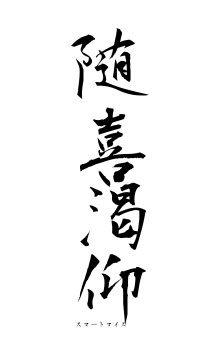 随喜渇仰
スマートマイズ